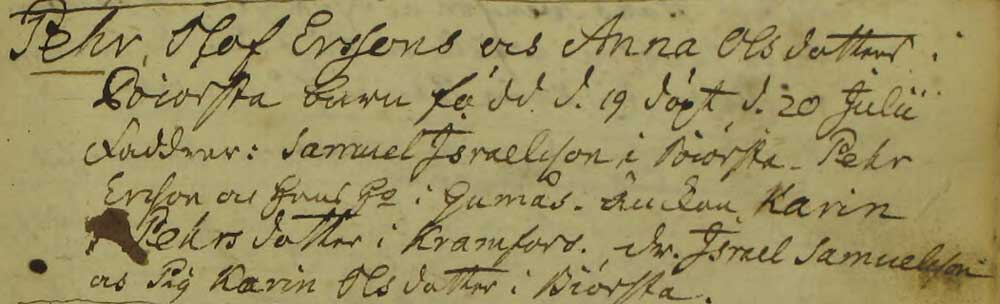 Pehr, Olof Erssons os Anna Olsdotters i
Biörsta barn född d. 19 döpt d. 20 Julii
Faddrar: Samuel Israelsson i Biörsta. Pehr
Ersson os hans H i Gumås. Änckan Karin
Pehrsdotter i Kramfors. dr. Israel Samuelsson
os Pig Karin Olsdotter i Biörsta.